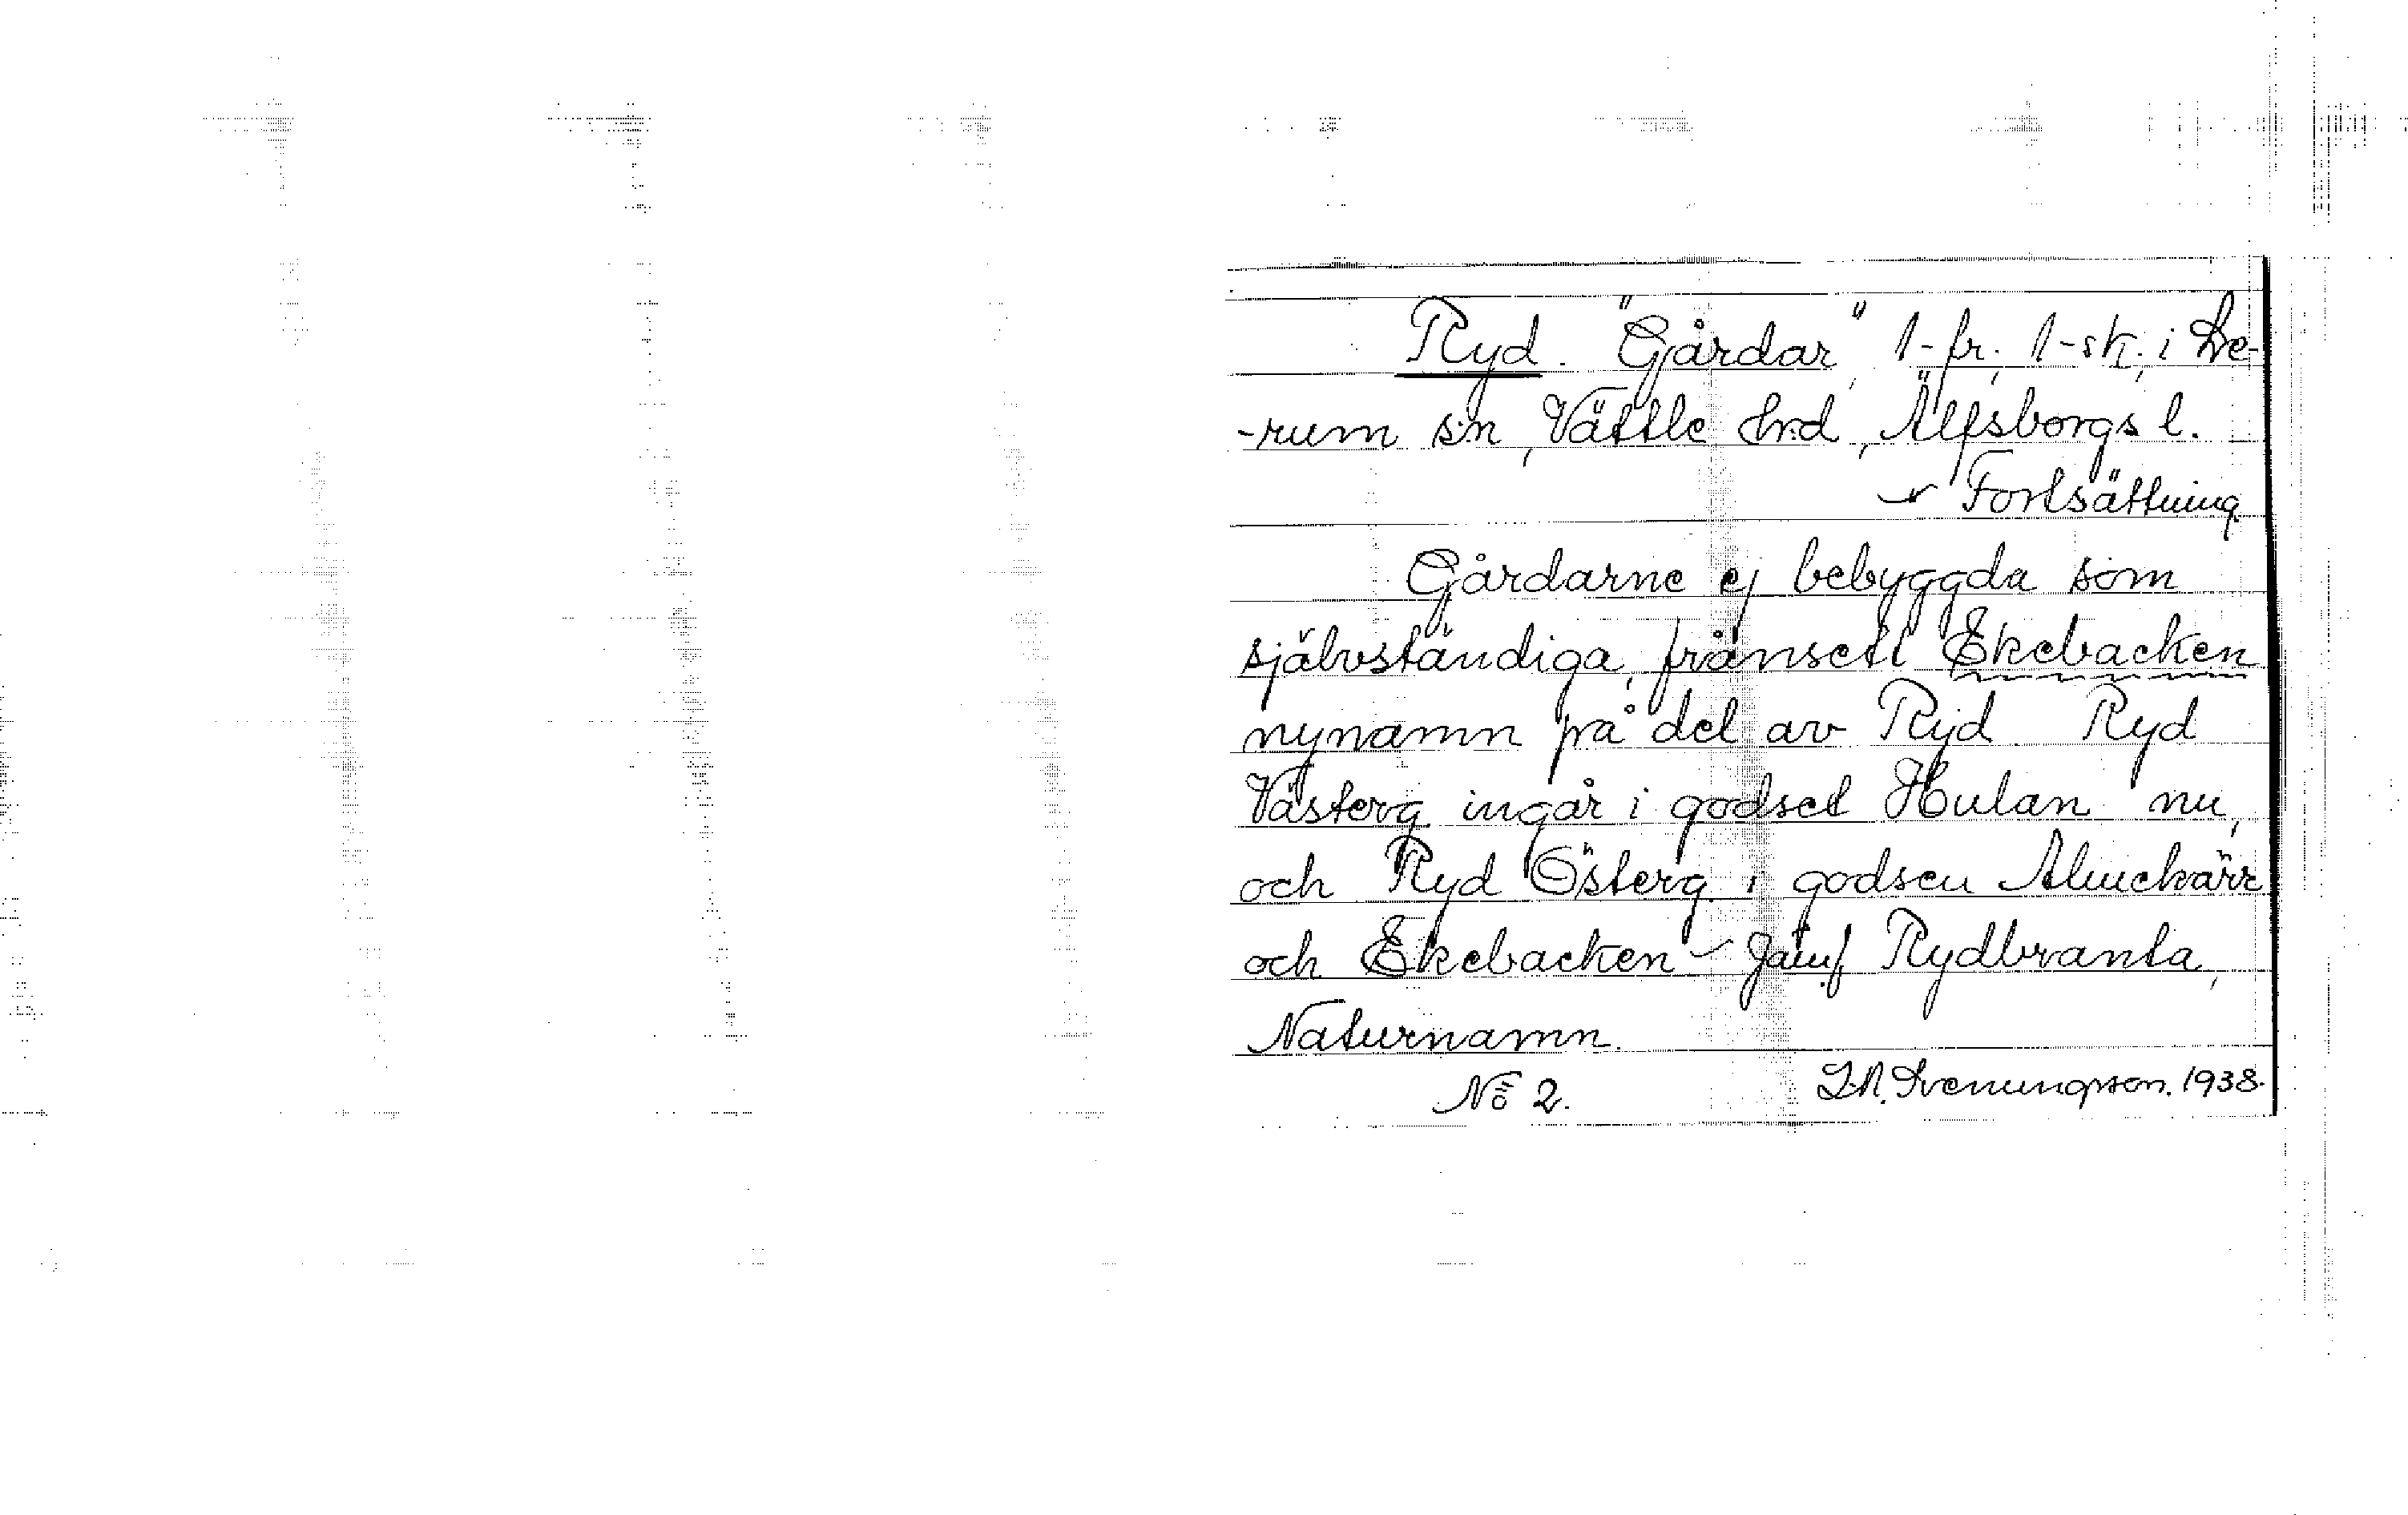 Ryd. "Gårdar", 1-fr., 1-sk., i Le-
-rum s:n, Vättle h:d, Älfsborgs l.
Fortsättning.
Gårdarne ej bebyggda som
självständiga, frånsett Ekebacken
nynamn på del av Ryd. Ryd
Västerg. ingår i godset Hulan nu,
och Ryd Österg. i godsen Almekärr
och Ekebacken – Jämf. Rydbranta,
Naturnamn.
No 2. Svenungsson. 1938.